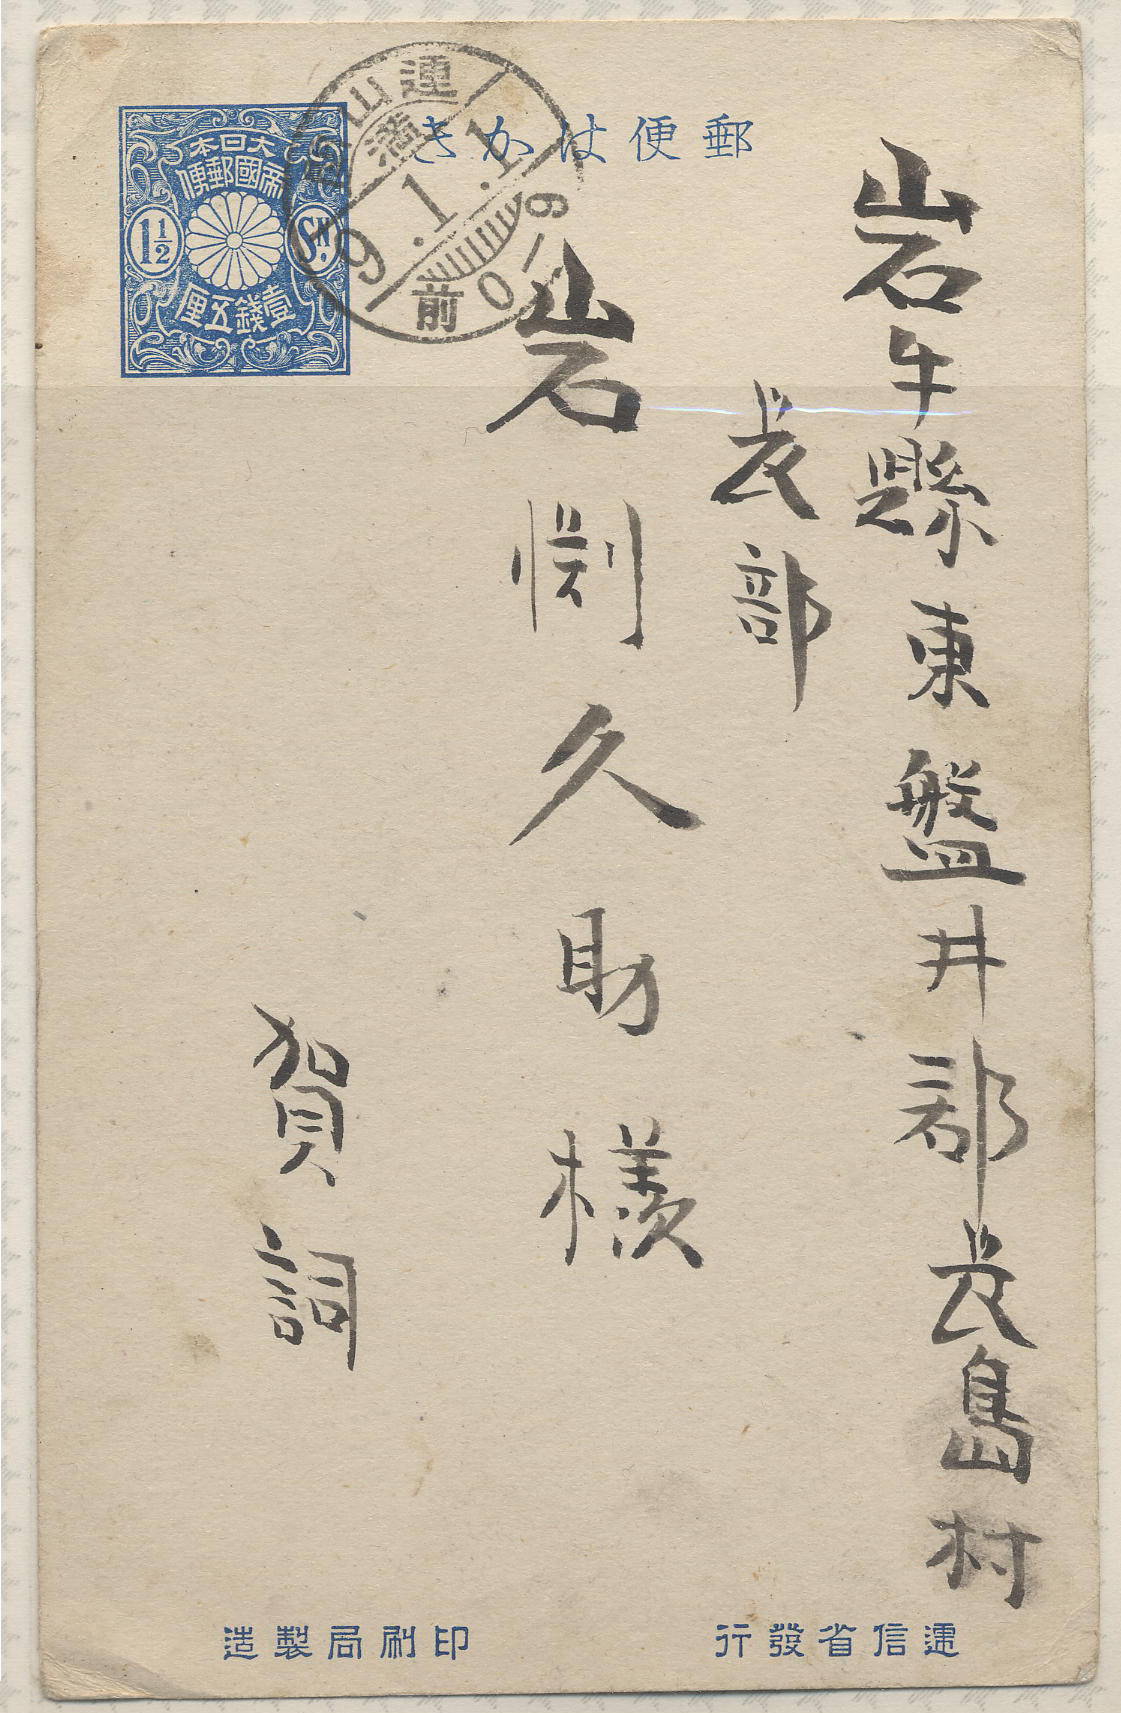 郵便はかき
大日本
帝國郵便
1½
Sn.
壹錢五厘
連山
満
9.1.1
前 0-9
岩手縣東盤井郡長島村
長部
岩渕久助様
賀詞
遞信省發行
印刷局製造